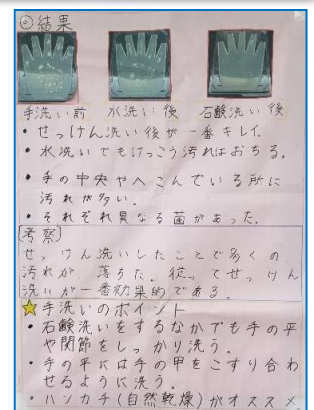 ◎結果
手洗い前 水洗い後 石鹸洗い後
・せっけん洗い後が一番キレイ。
・水洗いでもけっこう汚れはおちる。
・手の中央やへこんでいる所に
汚れが多い。
・それぞれ異なる菌があった。
[考察]
せっけん洗いしたことで多くの
汚れが、落ちた。従ってせっけん
洗いが一番効果的である。
☆手洗いのポイント
・石鹸洗いをするなかでも手の平
や関節をしっかり洗う。
・手の平には手の甲をこすり合わ
せるように洗う。
・ハンカチ(自然乾燥)がオススメ